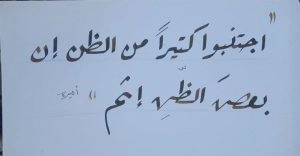 " اجتنبوا كثيراً من الظن إن
بعض الظّنِ إثم "